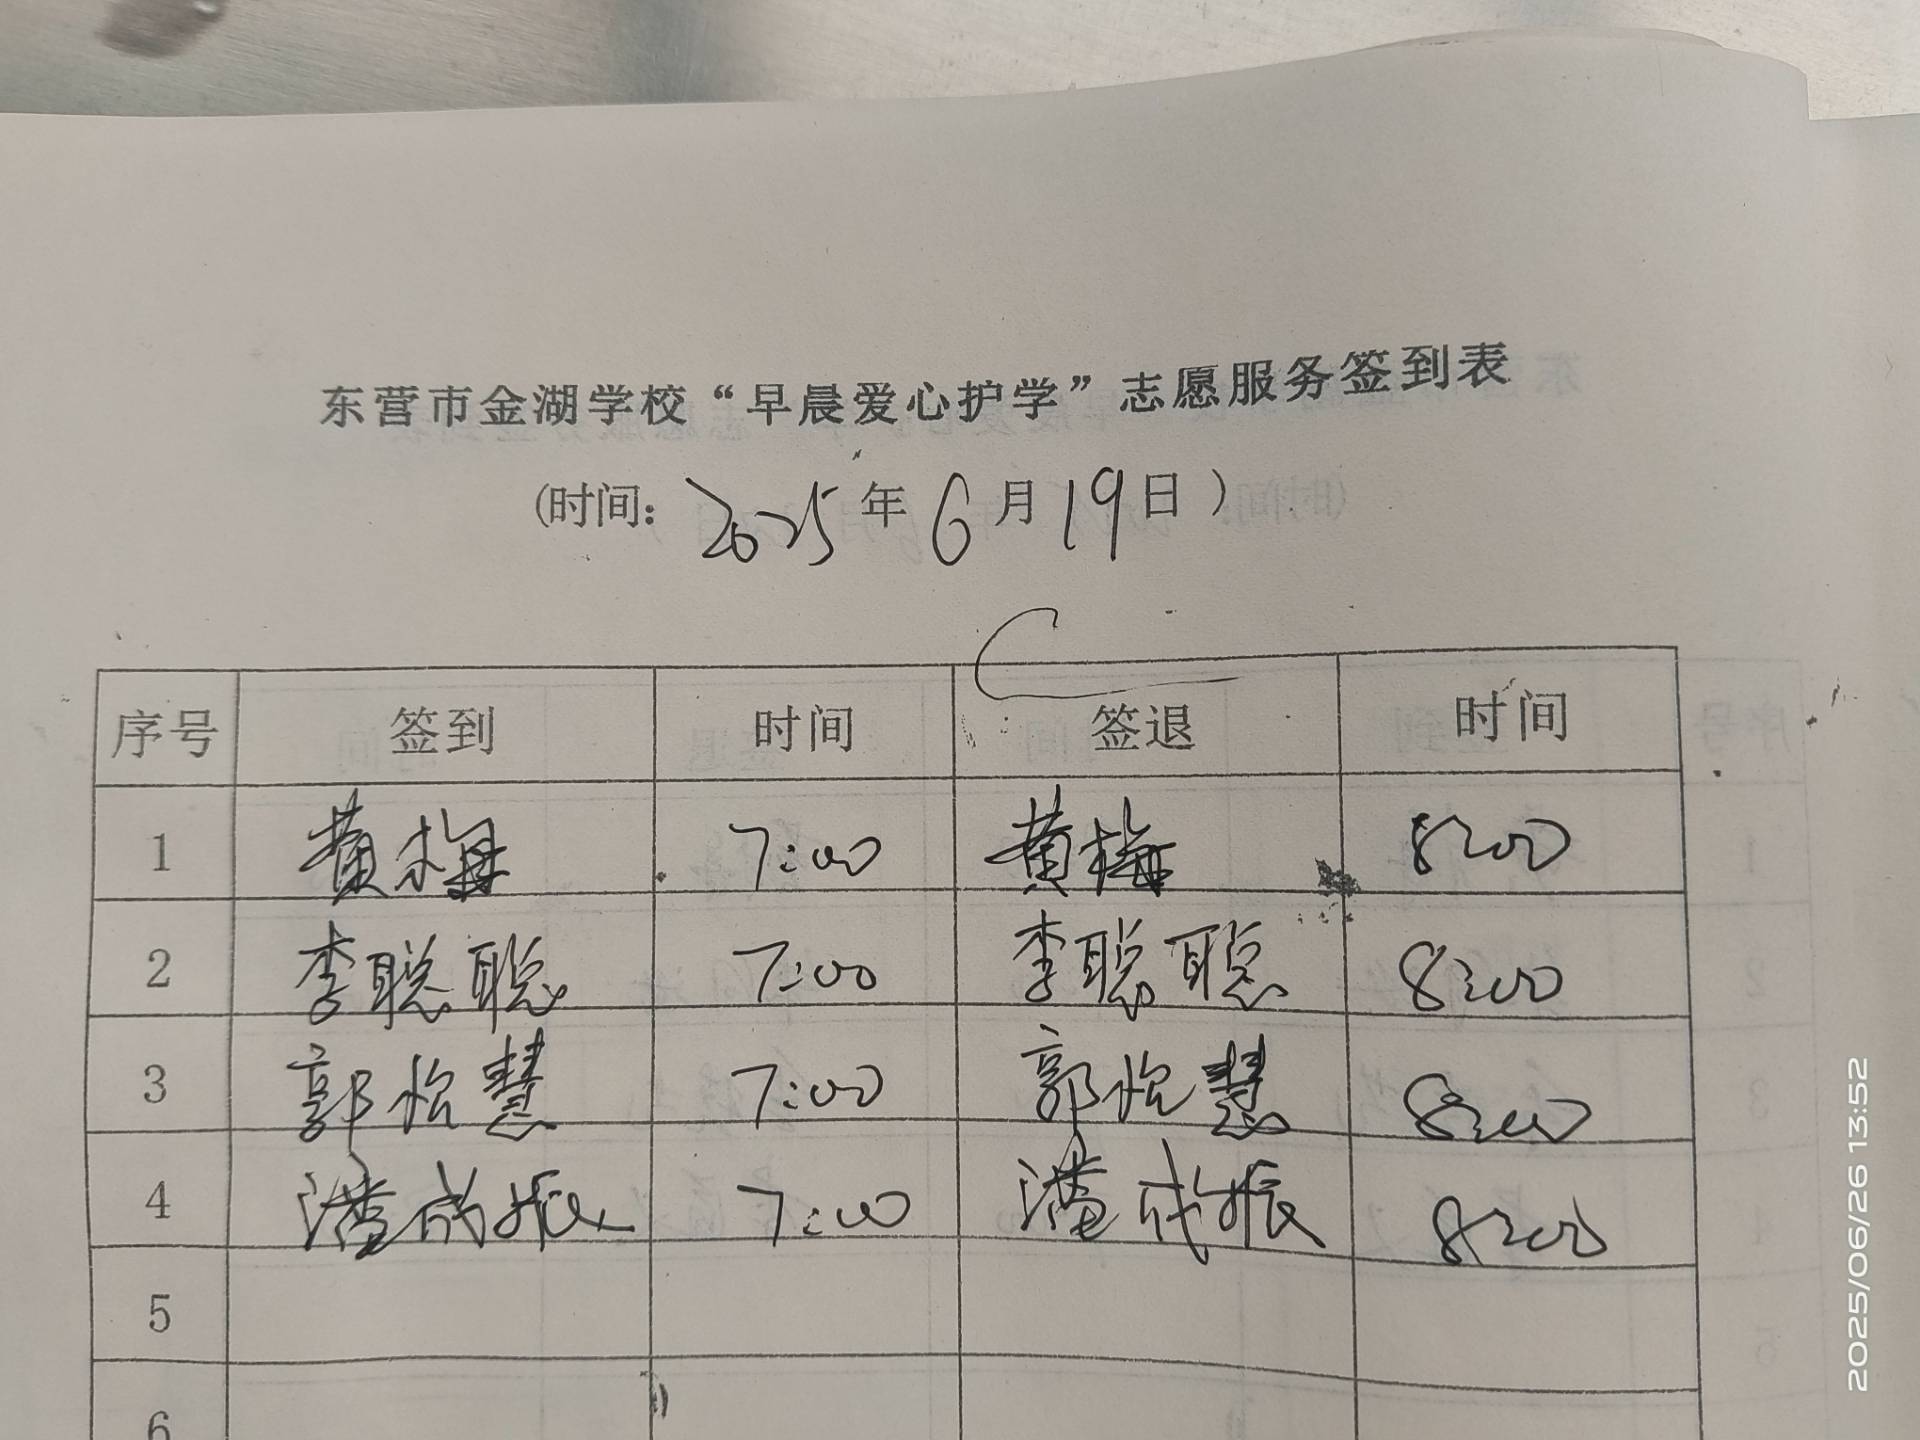 东营市金湖学校“早晨爱心护学”志愿服务签到表
(时间：2025年6月19日)
序号 签到 时间 签退 时间
1 黄梅 7:00 黄梅 8:00
2 李聪聪 7:00 李聪聪 8:00
3 郭怡慧 7:00 郭怡慧 8:00
4 潘成振 7:00 潘成振 8:00
5
6
2025/06/26 13:52